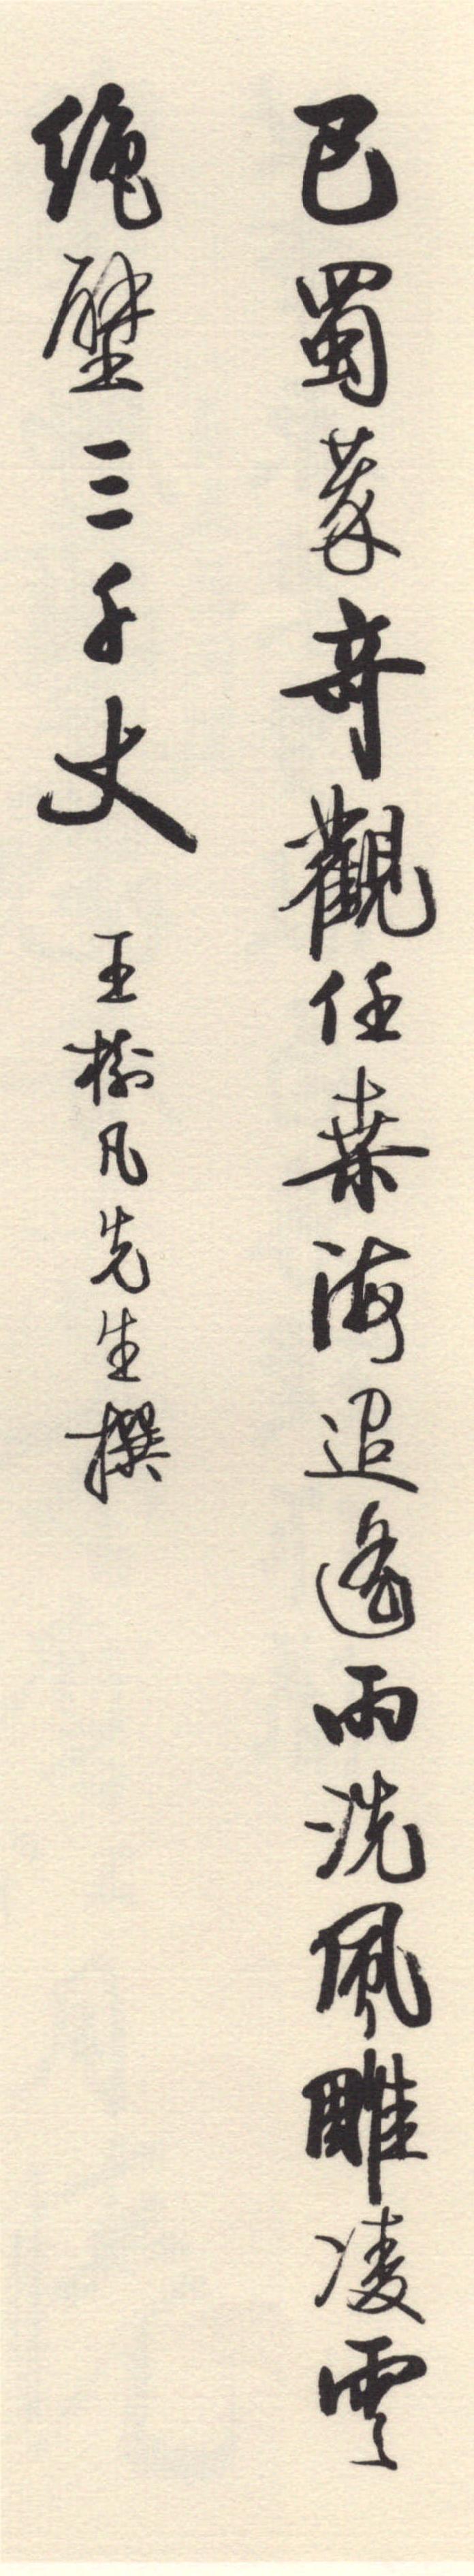 巴蜀奇觀任桑海迢遙雨洗風雕凌雲
絕壁三千丈 王樹凡先生撰